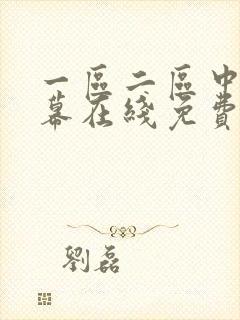 一區二區中
幕在綫免費
劉磊